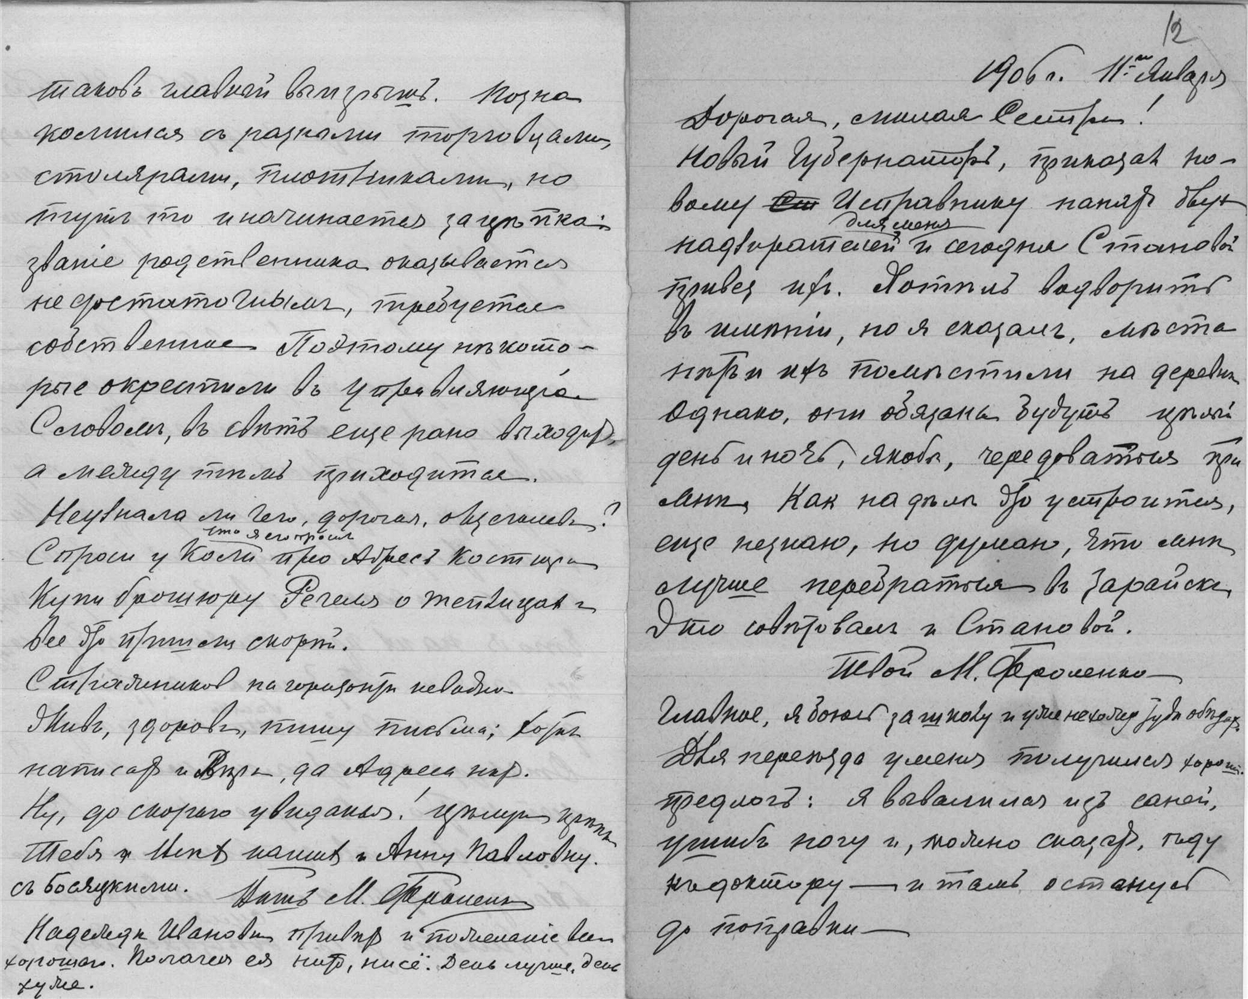 таковъ главный выигрышъ. Позна
комился съ разными торговцами,
столярами, плотниками, но
тутъ то и начинается зацѣпка:
званіе родственника оказывается
недостаточнымъ, требуется
собственное Поэтому нѣкото-
рые окрестили въ управляющіе.
Словомъ, въ свѣтъ еще рано выходить,
а между тѣмъ приходится.
Неузнала ли чего, дорогая,
что я его просилъ
Спроси у Коли про Адресъ Костици
Купи брошюру Регеля о
все это пришли скорѣй.
Стражниковъ на горизонтѣ невидно
Живъ, здоровъ, пишу письма; хотѣлъ
написать и Вѣрѣ, да Адреса нѣтъ.
Ну, до скораго увиданья! цѣлую крѣпко
Тебя и и Анну Павловну.
съ Босяцкими. Вашъ М. Фроленко
Надеждѣ Ивановнѣ привѣтъ и пожеланіе всего
хорошаго. ея День лучше, день
хуже.
12
1906 г. 11го Января
Дорогая, милая Сестра!
Новый Губернаторъ, приказалъ но-
вому Исправнику нанять двухъ
для меня
надзирателей и сегодня Становой
привез ихъ. Хотѣлъ водворить
въ имѣніи, но я сказалъ, мѣста
нѣтъ и ихъ помѣстили на деревнѣ
Однако, они обязаны будутъ цѣлый
день и ночь, якобы, чередоваться при
мнѣ. Как на дѣлѣ это устроится,
еще незнаю, но думаю, что мнѣ
лучше перебраться въ Зарайскъ
Это совѣтовалъ и Становой.
Твой М. Фроленко
Главное, я боюсь за школу и уже
Для переѣзда у меня получился хорош.
предлогъ: я вывалился изъ саней,
ушибъ ногу и, можно сказать, ѣду
къ доктору — и тамъ останусь
до поправки —